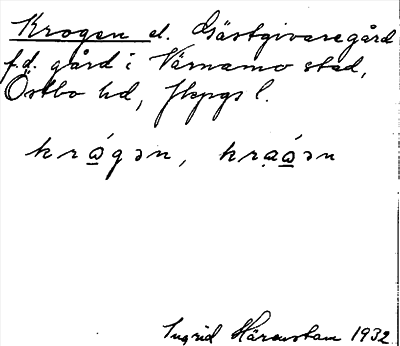 Krogen el. Gästgivaregård
f.d. gård i Värnamo stad,
Östbo hd, Jkpgs l.
krǫ́gən, krąǫ́ən
Ingrid Härenstam 1932